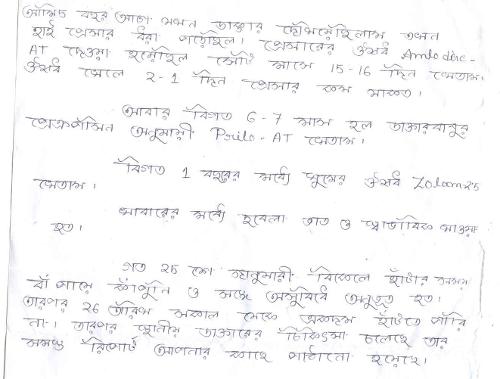 আশিচ বছর আগে যখন ডাক্তার দেখিয়েছিলাম তখন
হাই প্রেসার ধরা পড়েছিল। প্রেসারের ঔষধ Amlodine-
AT দেওয়া হয়েছিল সেটি মাসে 15-16 দিন খেতাম।
ঔষধ খেলে 2-1 দিন প্রেসার কম থাকত।
আবার বিগত 6-7 মাস হল ডাক্তারবাবুর
প্রেসক্রিপসিন অনুযায়ী Prilo-AT খেতাম।
বিগত 1 বছরের মধ্যে ঘুমের ঔষধ Zoloam25
খেতাম।
খাবারের মধ্যে দুবেলা ভাত ও স্বাভাবিক খাওয়া
হত।
গত 25 শে জানুয়ারী বিকেলে হাঁটার সময়
বাঁ পায়ে কাঁপুনি ও সঙ্গে অসুবিধে অনুভূত হত।
তারপর 26 তারিখ সকাল থেকে একদম হাঁটতে পারি
না। তারপর স্থানীয় ডাক্তারের চিকিৎসা চলেছে তার
সমস্ত রিপোর্ট আপনার কাছে পাঠানো হয়েছে।